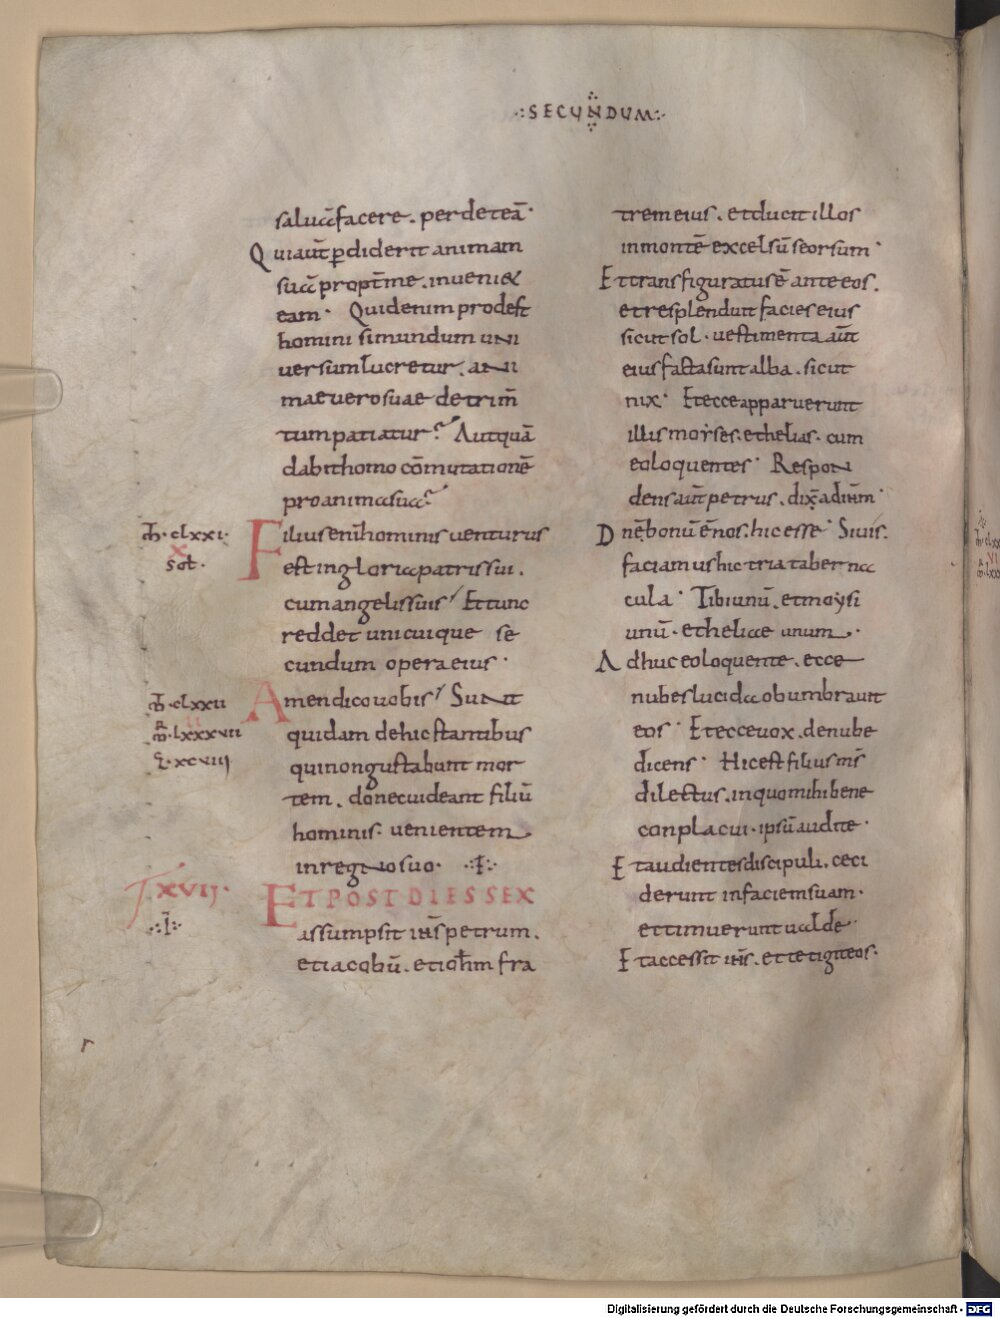 ·:SECUNDUM:·
saluā facere. perdet eā·
Qui aut̄ ꝑdiderit animam
suā propt̄ me. inueniet
eam· Quid enim prodest
homini si mundum uni
uersum lucretur. ani
mae uero suae detrim̄
tum patiatur? Aut quā
dabit homo cōmutationē
pro anima sua?
Filius enī hominis uenturus
est in gloria patris sui.
cum angelis suis· Et tunc
reddet unicuique se
cundum opera eius·
Amen dico uobis· Sunt
quidam de hic stantibus
qui non gustabunt mor
tem. donec uideant filiū
hominis· uenientem
in regno suo· ·:I:·
ET POST DIES SEX
assumpsit ih̄s petrum.
et iacobū. et ioh̄m fra
m̄·clxxi·
x
sol·
m̄·clxxii
ii
m̄·lxxxvii
l̄·xcviii
XVII·
·:I:·
r
trem eius. et ducit illos
in montē excelsū seorsum·
Et transfiguratus ē ante eos.
et resplenduit facies eius
sicut sol· uestimenta aut̄
eius facta sunt alba. sicut
nix· Et ecce apparuerunt
illis moyses. et helias· cum
eo loquentes· Respon
dens aut̄ petrus. dix̄ ad ih̄m·
Dn̄e bonū ē nos. hic esse· Si uis.
faciamus hic tria taberna
cula· Tibi unū. et moysi
unū· et heliae unum·
Adhuc eo loquente. ecce
nubes lucida obumbrauit
eos· Et ecce uox. de nube
dicens· Hic est filius m̄s
dilectus. in quo mihi bene
conplacui· ipsū audite·
Et audientes discipuli. ceci
derunt in faciem suam·
et timuerunt ualde·
Et accessit ih̄s. et tetigit eos·
Digitalisierung gefördert durch die Deutsche Forschungsgemeinschaft - DFG